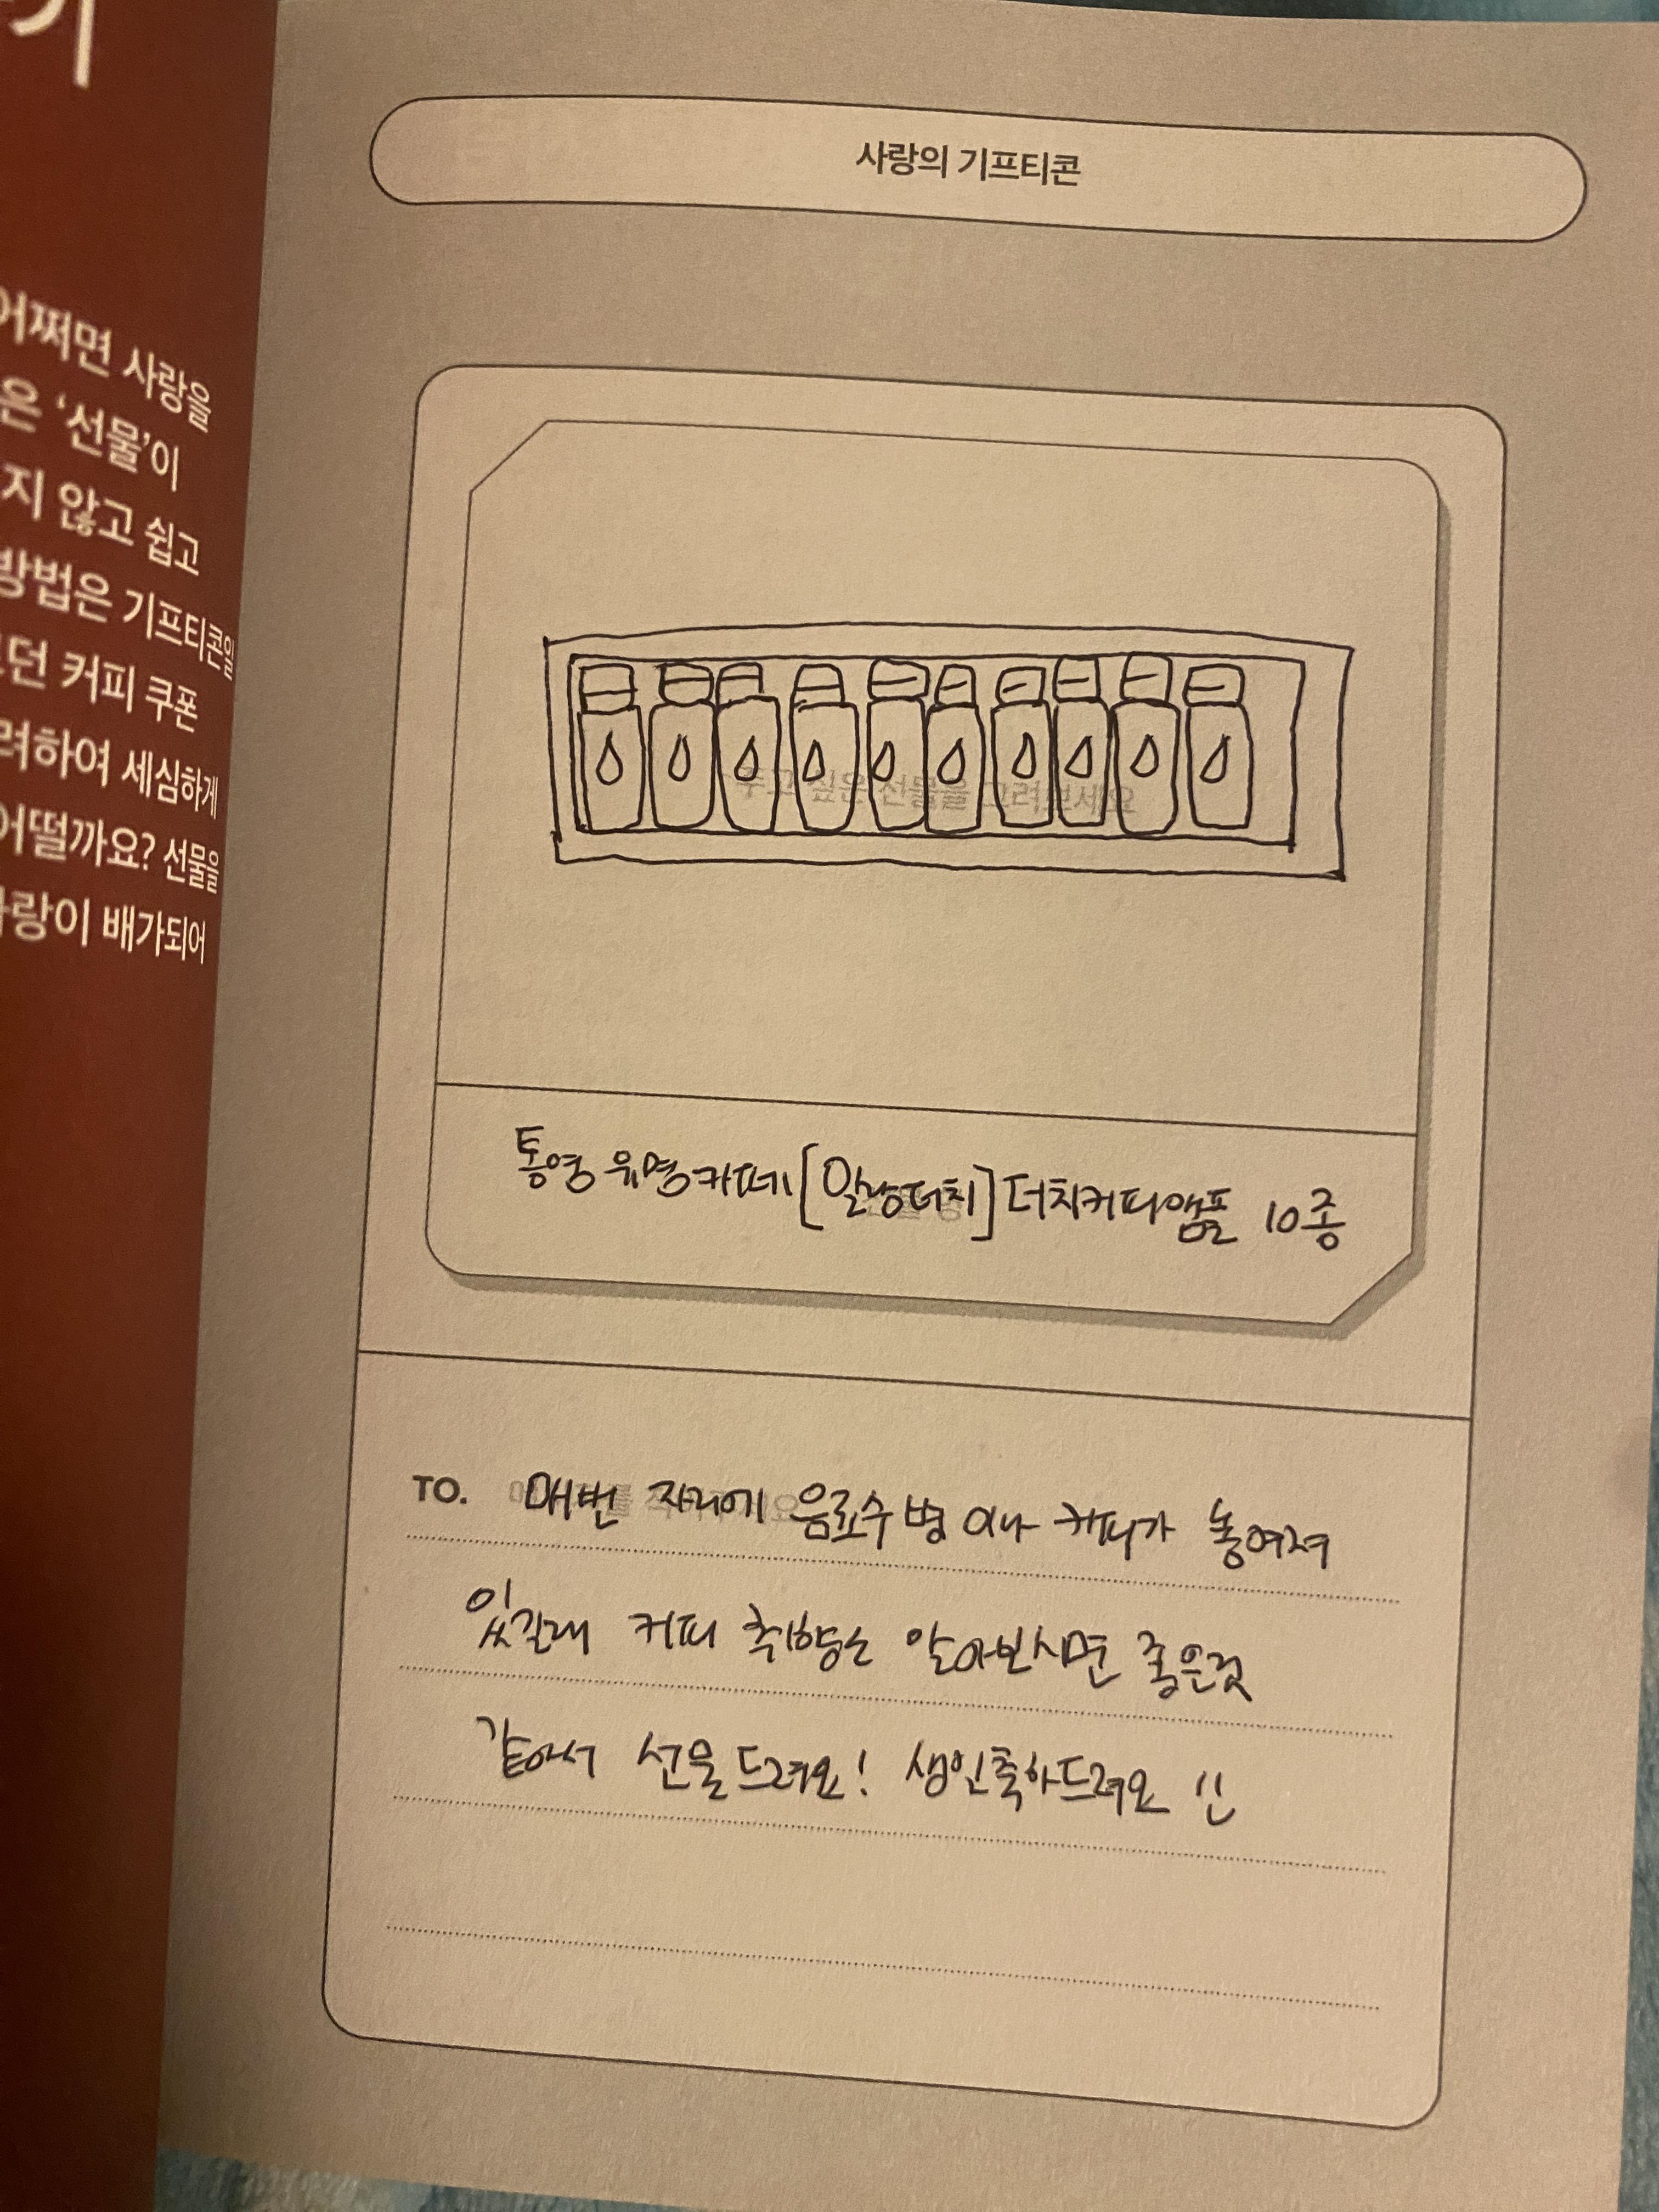 기
사랑의 기프티콘
어쩌면 사랑을
은 ‘선물’이
지 않고 쉽고
방법은 기프티콘일
던 커피 쿠폰
려하여 세심하게
어떨까요? 선물을
사랑이 배가되어
주고 싶은 선물을 그려보세요
통영 유명카페 [말랑더치] 더치커피앰플 10종
TO. 매번 자리에 음료수병이나 커피가 놓여져
있길래 커피 취향은 알아보시면 좋은것
같아서 선물드려요! 생일축하드려요 !!